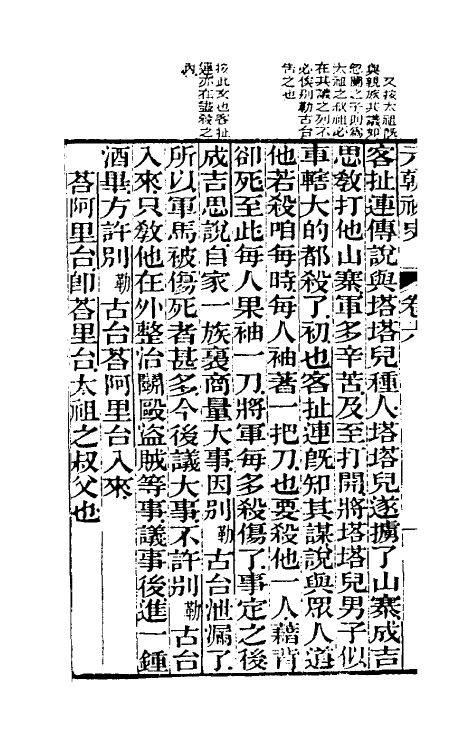 又按太祖旣
與親族共議如
忽闌之子則爲
太祖之叔祖必
在其議之列不
必俟別勒古台
告之也
按此文也客扯
連亦在盡殺之
內
元朝祕史 卷六 一
客扯連傳說與塔塔兒種人塔塔兒遂據了山寨成吉
思敎打他山寨軍多辛苦及至打開將塔塔兒男子似
車轄大的都殺了初也客扯連旣知其謀說與眾人道
他若殺咱每時每人袖著一把刀也要殺他一人藉背
卻死至此每人果袖一刀將軍每多殺傷了事定之後
成吉思說自家一族裏商量大事因別勒古台泄漏了
所以軍馬被傷死者甚多今後議大事不許別勒古台
入來只敎他在外整治鬬毆盜賊等事議事後進一鍾
酒畢方許別勒古台荅阿里台入來
荅阿里台卽荅里台太祖之叔父也